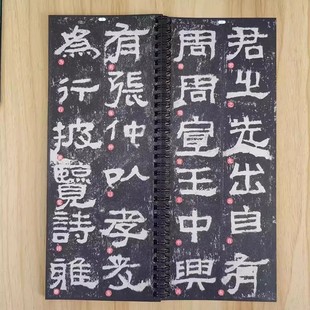 君之先出自有
周周宣王中興
有張仲以孝友
為行披覽詩雅